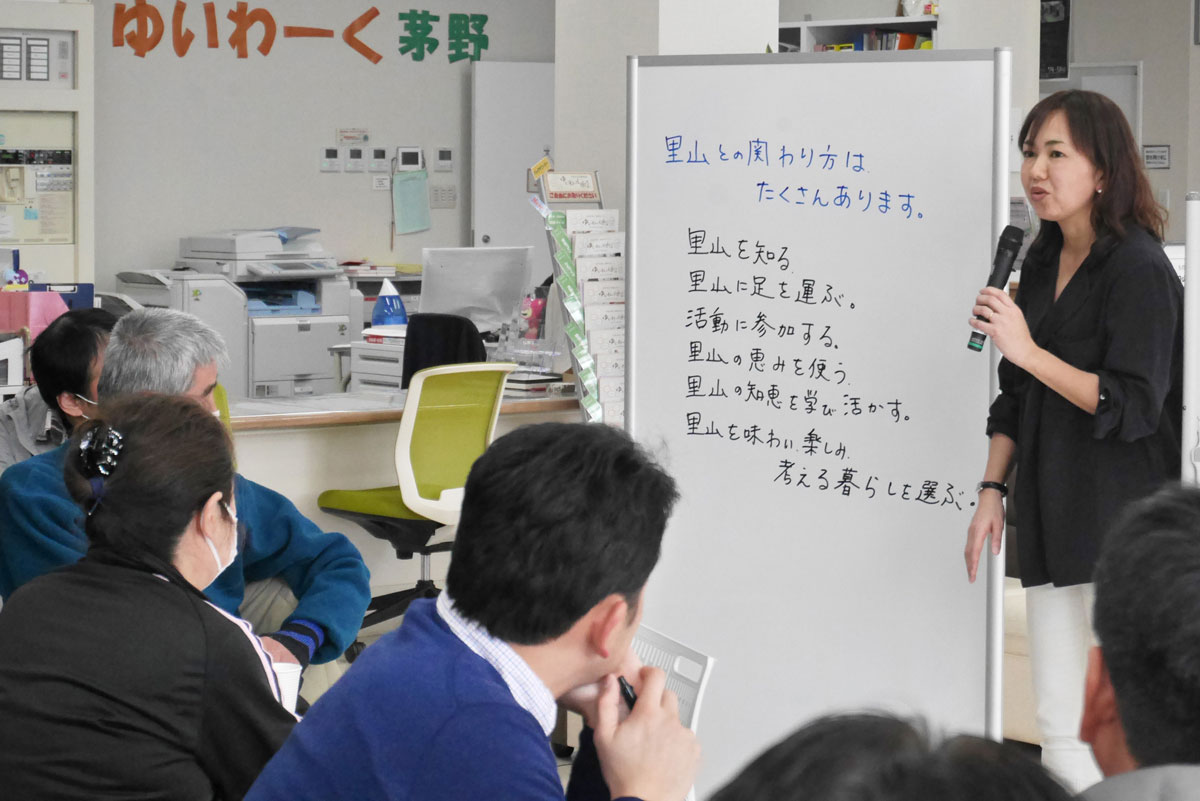 ゆいわーく茅野
里山との関わり方は、
たくさんあります。
里山を知る。
里山に足を運ぶ。
活動に参加する。
里山の恵みを使う。
里山の知恵を学び活かす。
里山を味わい、楽しみ、
考える暮らしを選ぶ。